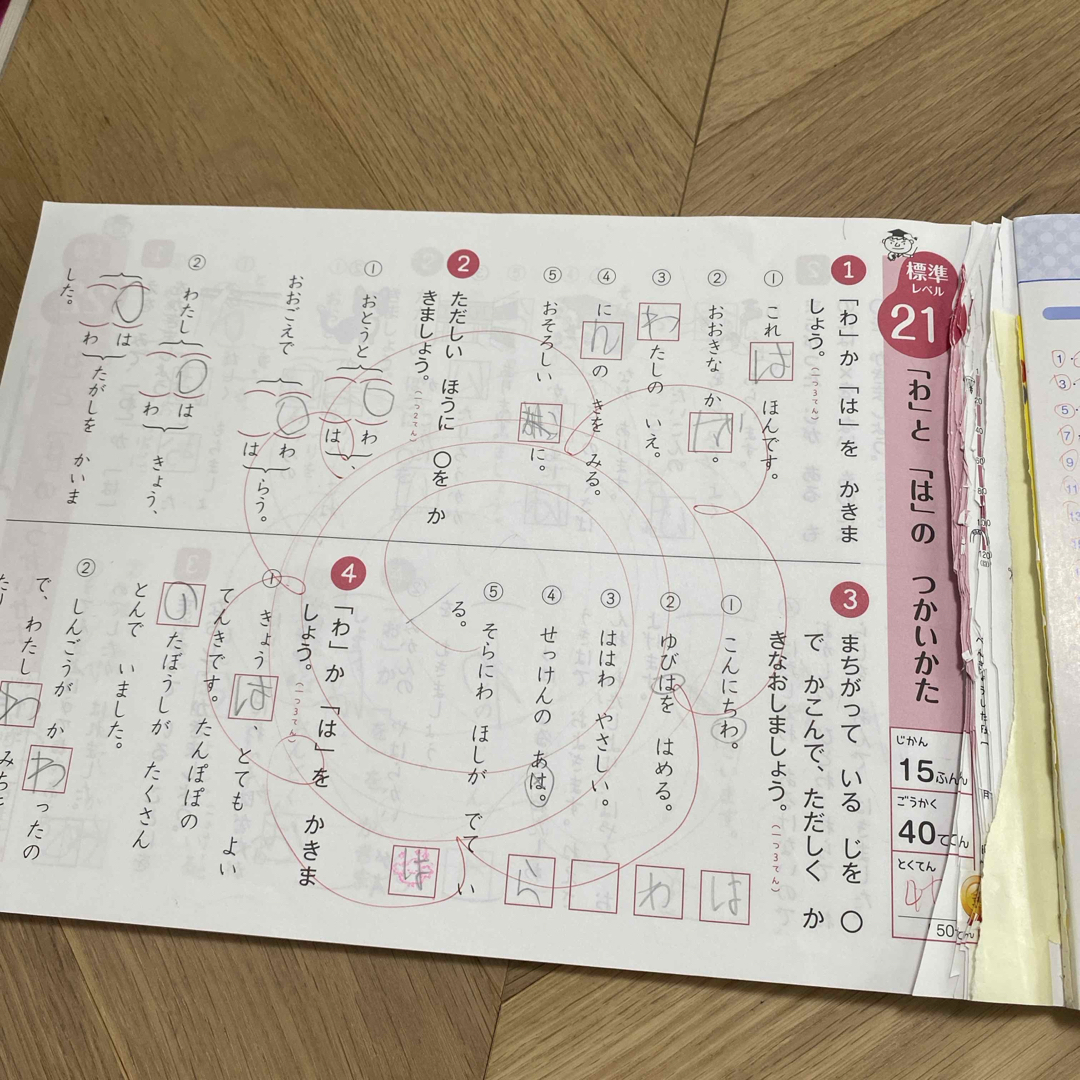 標準
レベル
21
「わ」と 「は」の つかいかた
じかん
15ふん
ごうかく
40てん
とくてん
45
50てん
1
「わ」か 「は」を かきま
しょう。(一つ3てん)
① これは ほんです。
② おおきな かわ。
③ わたしの いえ。
④ にわの きを みる。
⑤ おそろしい に。
2
ただしい ほうに ○を か
きましょう。(一つ2てん)
① おとうと わ は、
おおごえで わ は らう。
② わたし は わ きょう、
は わ たがしを かいま
した。
3
まちがって いる じを ○
で かこんで、ただしく か
きなおしましょう。(一つ3てん)
① こんにちわ。 は
② ゆびはを はめる。 わ
③ ははわ やさしい。
④ せっけんの あは。 わ
⑤ そらにわ ほしが でて い
る。 は
4
「わ」か 「は」を かきま
しょう。(一つ3てん)
① きょうは、とても よい
てんきです。たんぽぽの
わたぼうしが たくさん
とんで いました。
② しんごうが かわったの
で、わたし